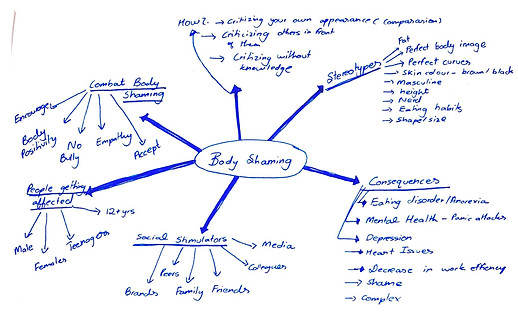 How? → Critizing your own appearance (comparasion)
→ Critizing others in front
of them
→ Critizing without
knowledge
Stereotypes
Fat
Perfect body image
Perfect curves
Skin colour - brown/black
Masculine
height
Nerd
Eating habits
Shape/size
Combat Body
Shaming
Encourage
Body
Positivity
No
Bully
Empathy
Accept
Body Shaming
People getting
affected
Male
Females
Teenagers
12+yrs
Social Stimulators
Brands
Peers
Family
Friends
Collegues
Media
Consequences
Eating disorder/Anorexia
Mental Health - Panic attacks
Depression
Heart Issues
Decrease in work effiency
Shame
Complex